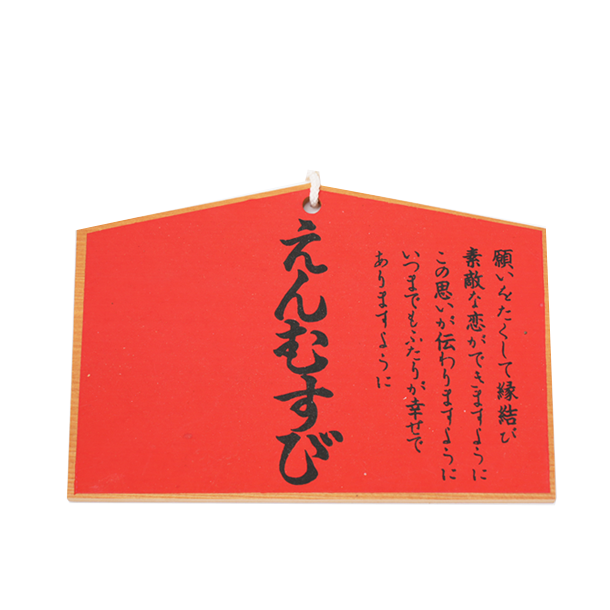 願いをたくして縁結び
素敵な恋ができますように
この思いが伝わりますように
いつまでもふたりが幸せで
ありますように
えんむすび